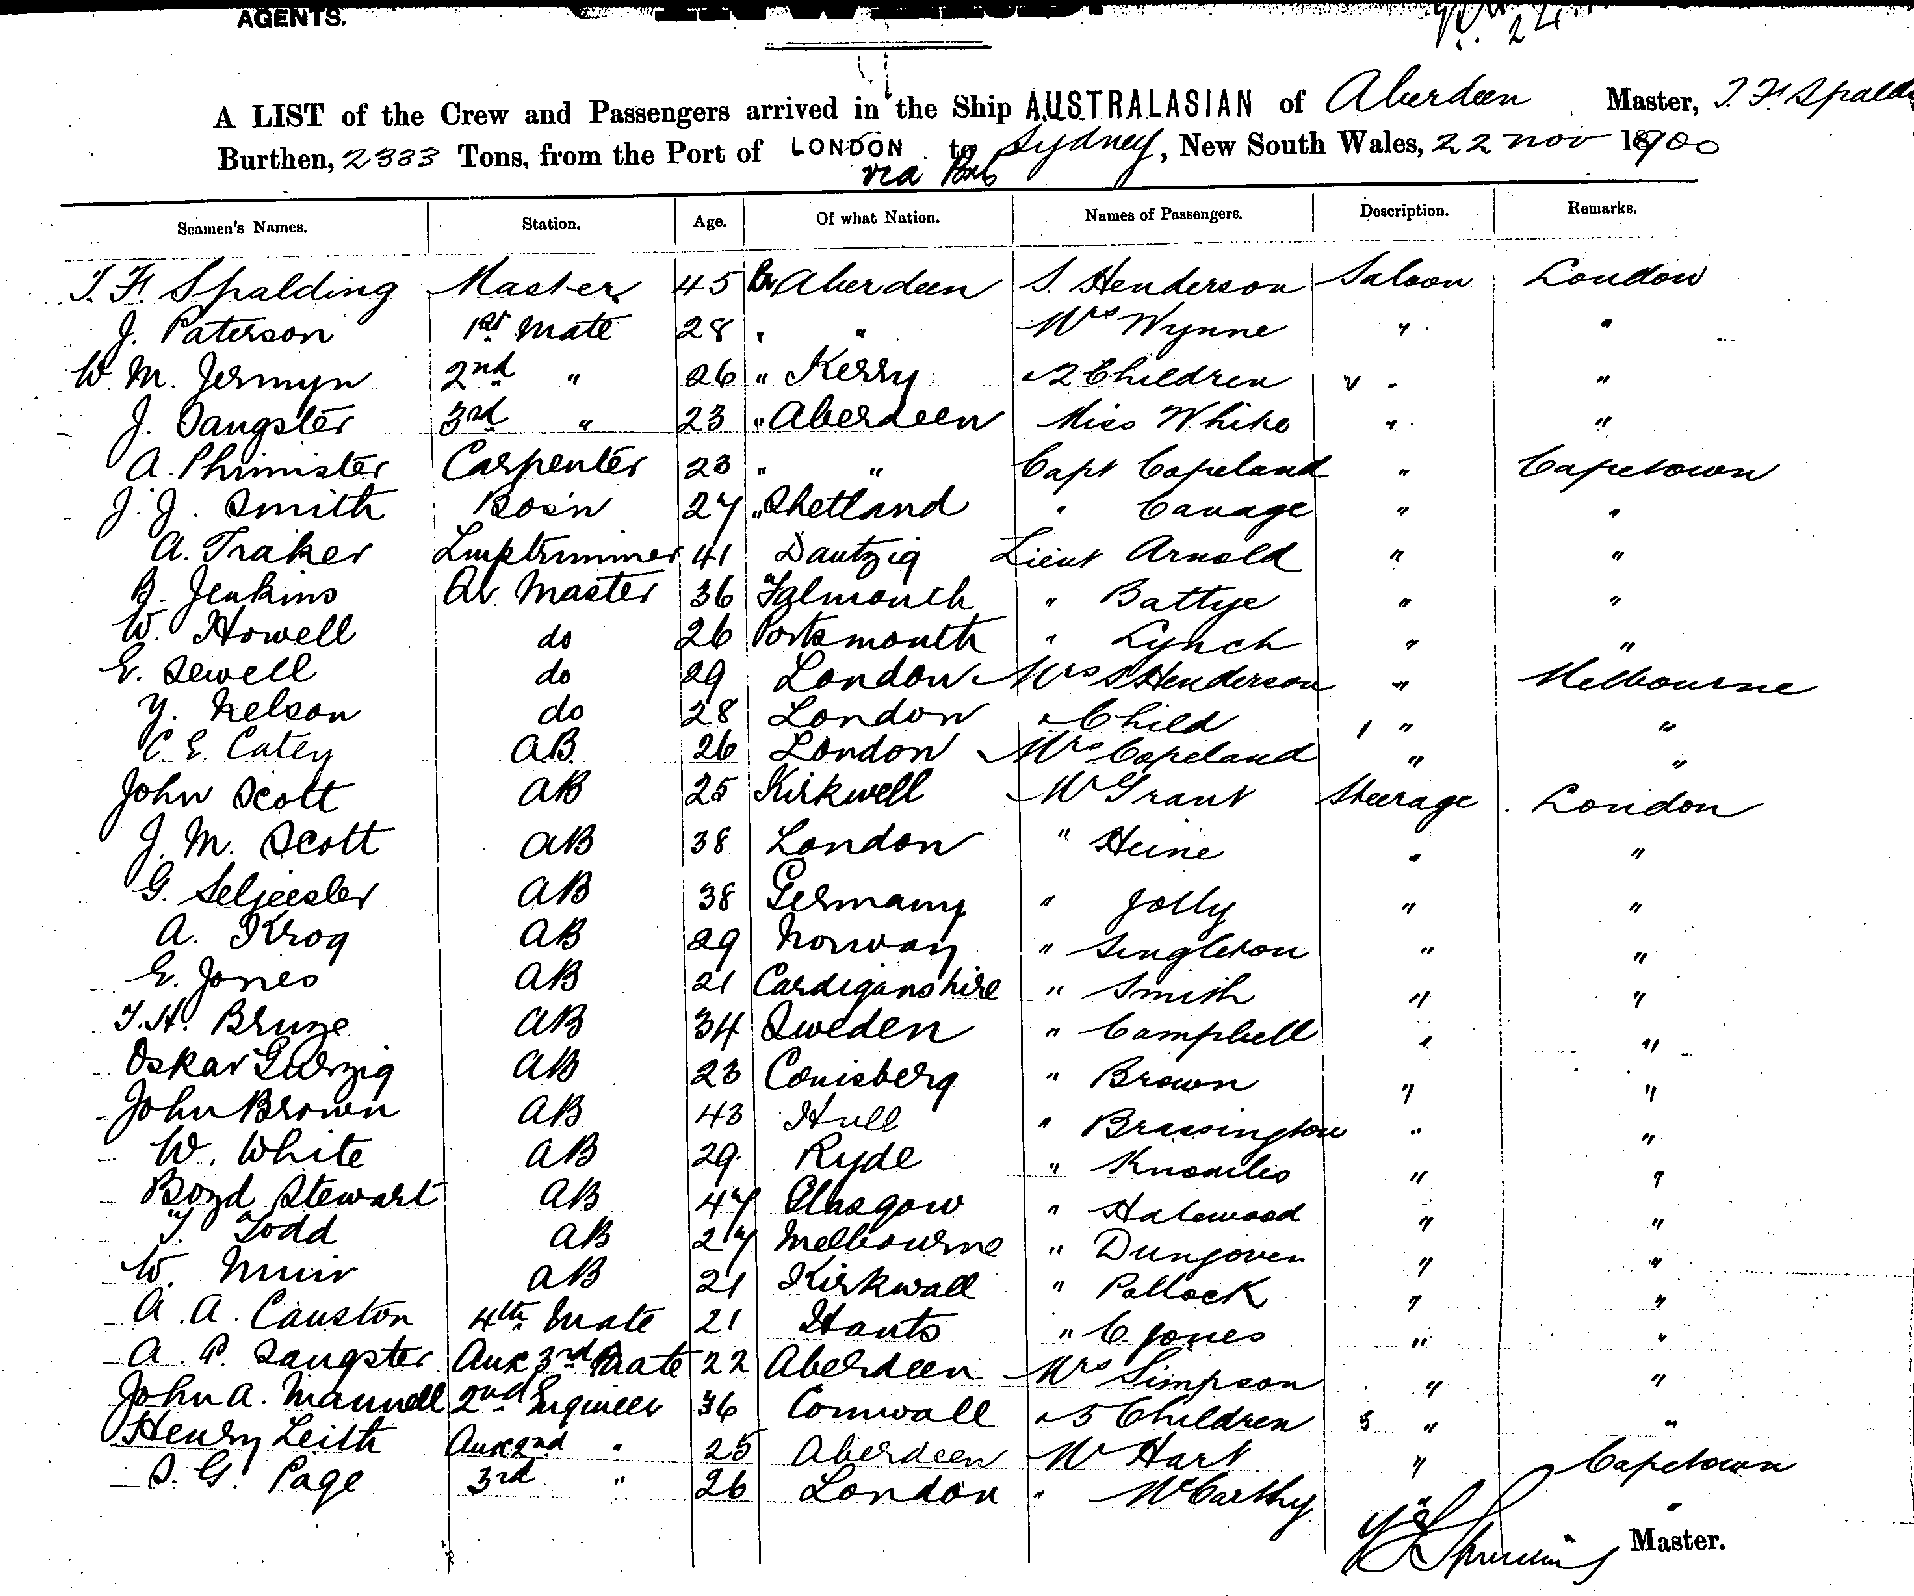 AGENTS.
24
A LIST of the Crew and Passengers arrived in the Ship AUSTRALASIAN of Aberdeen Master, T. F. Spaldi
Burthen, 2333 Tons, from the Port of LONDON to Sydney, New South Wales, 22 nov 1900
via Ports
Seamen's Names. Station. Age. Of what Nation. Names of Passengers. Description. Remarks.
T. F. Spalding Master 45 Br Aberdeen S. Henderson Saloon London
J. Paterson 1st Mate 28 " " Mrs Wynne " "
W. M. Jermyn 2nd " 26 " Kerry 2 Children " "
J. Sangster 3rd " 23 " Aberdeen Miss White " "
A. Phimister Carpenter 23 " " Capt Copeland " Capetown
J. J. Smith Bosn 27 " Shetland " Canage " "
A. Traker Lmptrimmer 41 Dantzig Lieut Arnold " "
B. Jenkins Qr. Master 36 Falmouth " Battye " "
W. Howell do 26 Portsmouth " Lynch " "
E. Sewell do 29 London Mrs S Henderson " Melbourne
Y. Nelson do 28 London Child 1 " "
C. E. Catey AB 26 London Mrs Copeland " "
John Scott AB 25 Kirkwell Mr Grant Steerage London
J. M. Scott AB 38 London " Heine " "
G. AB 38 Germany " Jolly " "
A. Krog AB 29 Norway " Singleton " "
E. Jones AB 21 Cardiganshire " Smith " "
T. H. Bruze AB 34 Sweden " Campbell " "
Oskar Gurzig AB 23 Conisberg " Brown " "
John Brown AB 43 Hull " Brassington " "
W. White AB 29 Ryde " Knowles " "
Boyd Stewart AB 47 Glasgow " Halewood " "
T. Todd AB 27 Melbourne " Dungoven " "
W. Muir AB 21 Kirkwall " Pollock " "
A. A. Causton 4th Mate 21 Hants " C. Jones " "
A. P. Sangster Aux 3rd Mate 22 Aberdeen Mrs Simpson " "
John A. Maunell 2nd Engineer 36 Cornwall 5 Children 5 " "
Henry Leith Aux 2nd " 25 Aberdeen Mr Hart " Capetown
S. G. Page 3rd " 26 London " McCarthy " "
Master.